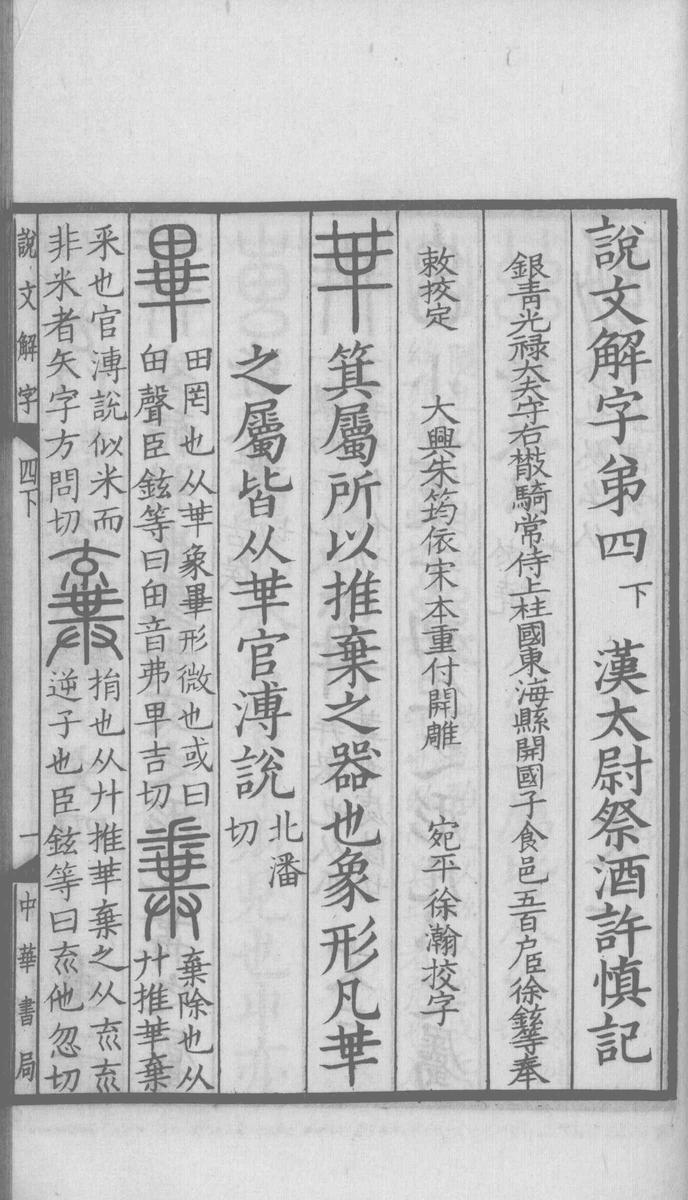 說文解字弟四下　漢太尉祭酒許慎記
銀青光祿大夫守右散騎常侍上柱國東海縣開國子食邑五百户臣徐鉉等奉
敕挍定　大興朱筠依宋本重付開雕　宛平徐瀚挍字
𠦒箕屬所以推棄之器也象形凡𠦒
之屬皆从𠦒官溥說北潘
切
畢田罔也从𠦒象畢形微也或曰
甶聲臣鉉等曰甶音弗卑吉切
糞棄除也从
廾推𠦒棄
釆也官溥說似米而
非米者矢字方問切
棄捐也从廾推𠦒棄之从𠫓𠫓
逆子也臣鉉等曰𠫓他忽切
說文解字　四下　一　中華書局